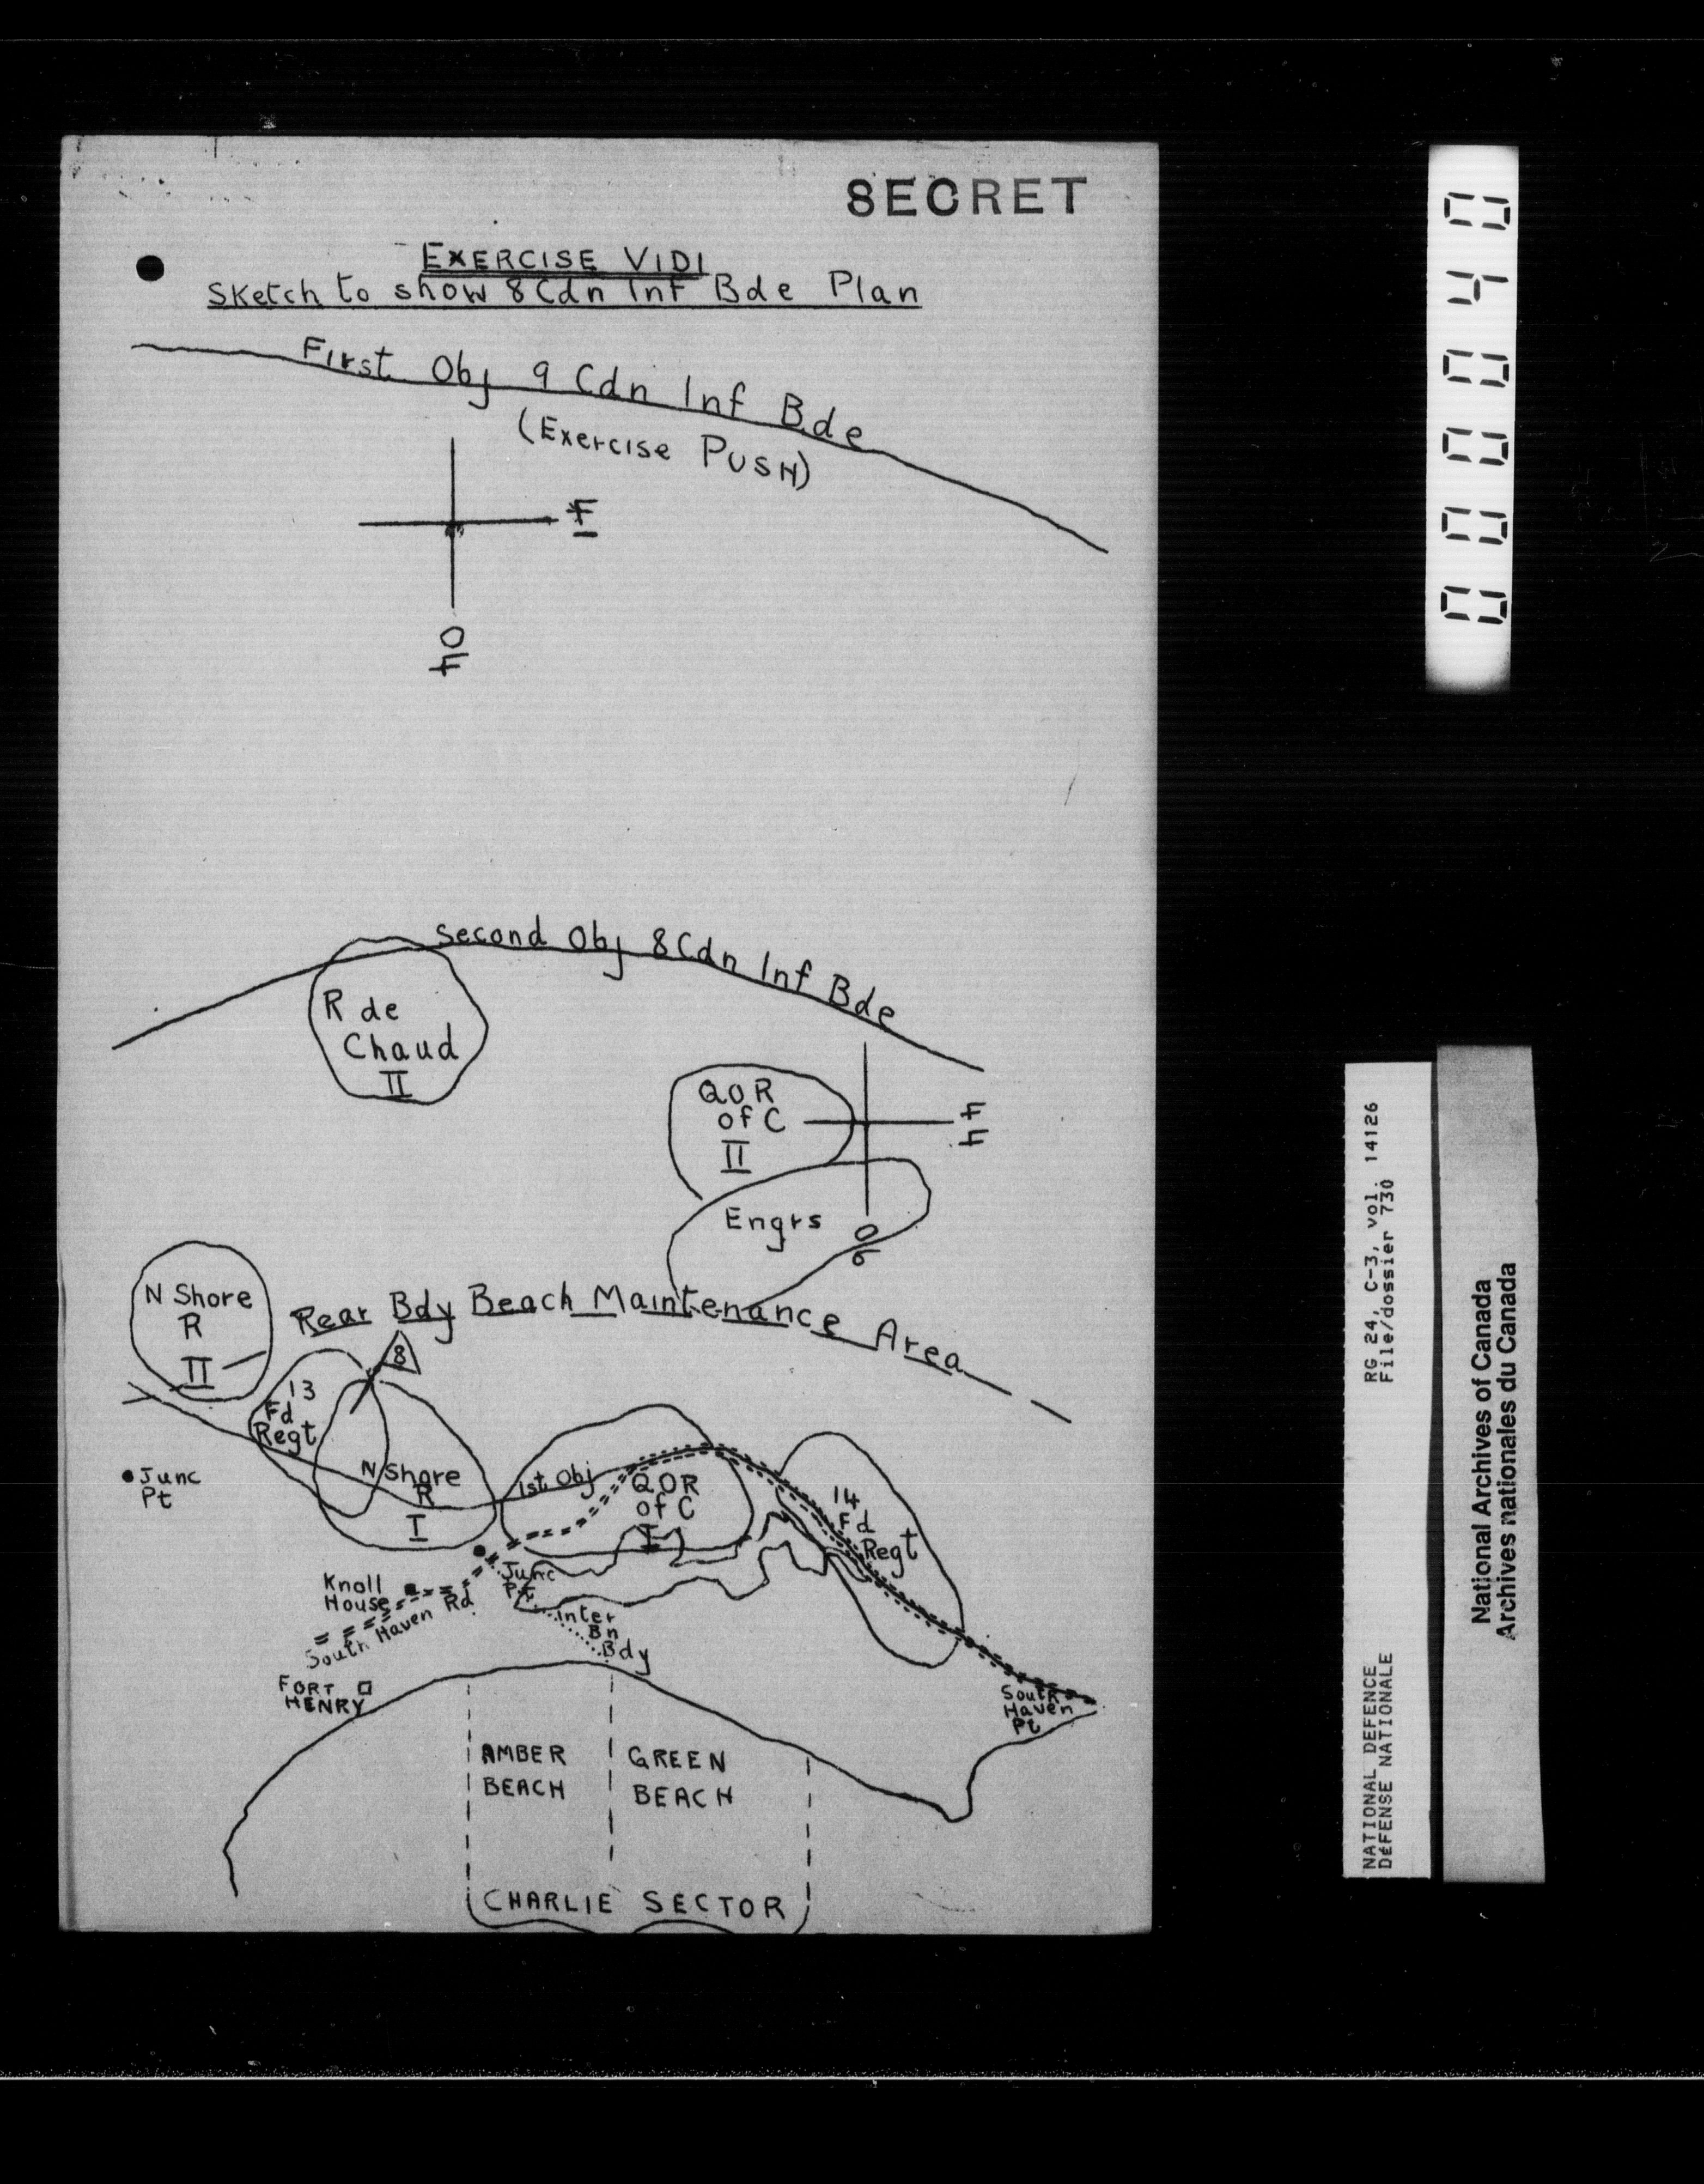 SECRET
EXERCISE VIDI
Sketch to show 8 Cdn Inf Bde Plan
First Obj 9 Cdn Inf Bde
(Exercise PUSH)
Second Obj 8 Cdn Inf Bde
R de
Chaud
II
QOR
of C
II
Engrs
N Shore
R
II
Rear Bdy Beach Maintenance Area
8
13
Fd
Regt
Junc
Pt
N Shore
R
I
1st Obj
QOR
of C
I
14
Fd
Regt
Knoll
House
South Haven Rd
Junc
Pt
Inter
Bn
Bdy
FORT
HENRY
South
Haven
Pt
AMBER
BEACH
GREEN
BEACH
CHARLIE SECTOR
000040
RG 24, C-3, vol. 14126
File/dossier 730
NATIONAL DEFENCE
DÉFENSE NATIONALE
National Archives of Canada
Archives nationales du Canada